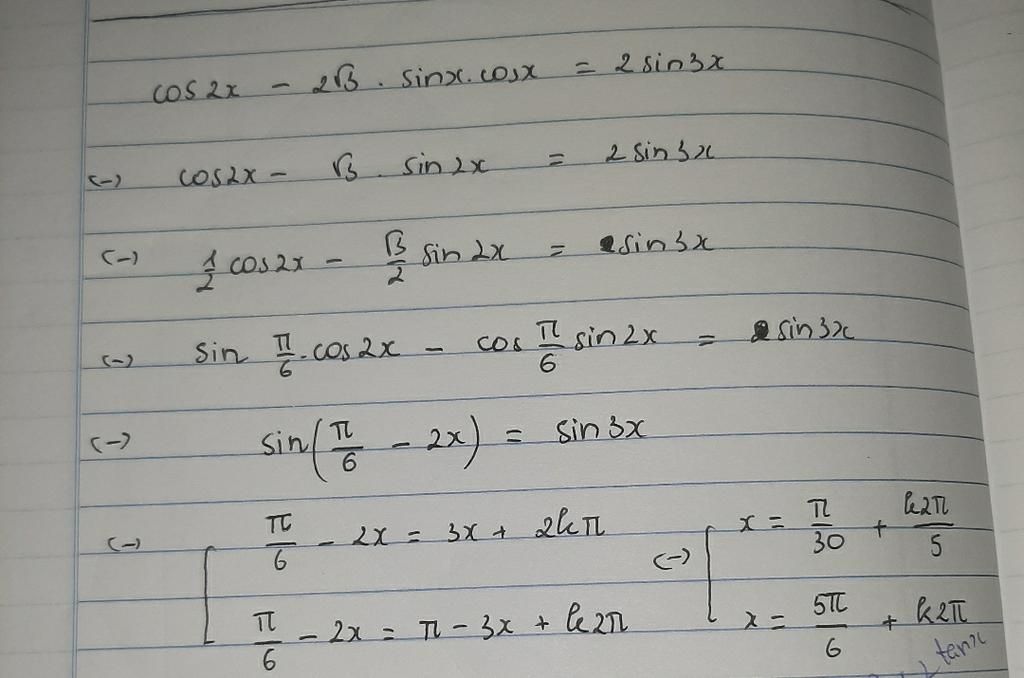 cos2x - 2√3 . sinx.cosx = 2sin3x
<-> cos2x - √3 . sin2x = 2sin3x
<-> 1/2 cos2x - √3/2 sin2x = sin3x
<-> sin π/6 . cos2x - cos π/6 sin2x = sin3x
<-> sin(π/6 - 2x) = sin3x
<-> [ π/6 - 2x = 3x + 2kπ <-> [ x = π/30 + k2π/5
π/6 - 2x = π - 3x + k2π x = 5π/6 + k2π
tanx